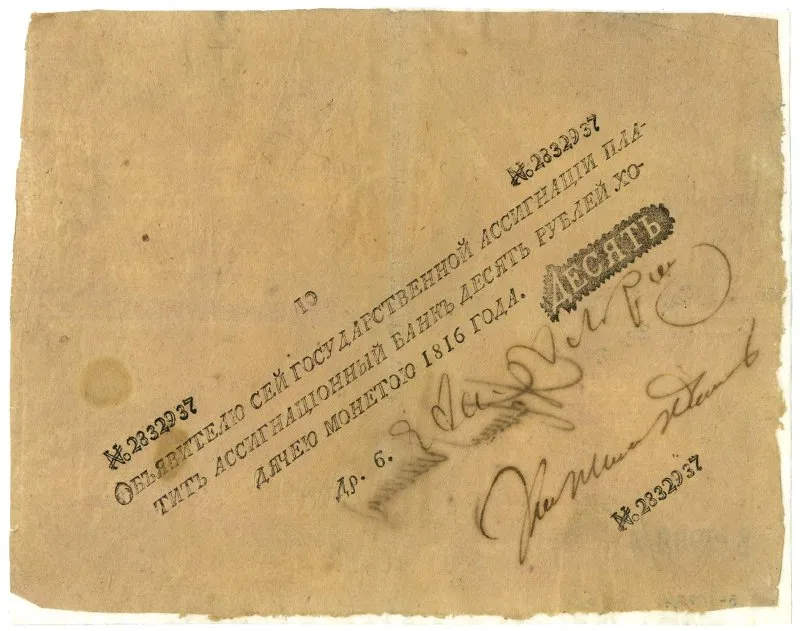 № 2832937
ОБЪЯВИТЕЛЮ СЕЙ ГОСУДАРСТВЕННОЙ АССИГНАЦІИ ПЛА-
ТИТЬ АССИГНАЦІОННЫЙ БАНКЪ ДЕСЯТЬ РУБЛЕЙ ХО-
ДЯЧЕЮ МОНЕТОЮ 1816 ГОДА.
ДЕСЯТЬ
№ 2832937
Др. 6.
№ 2832937